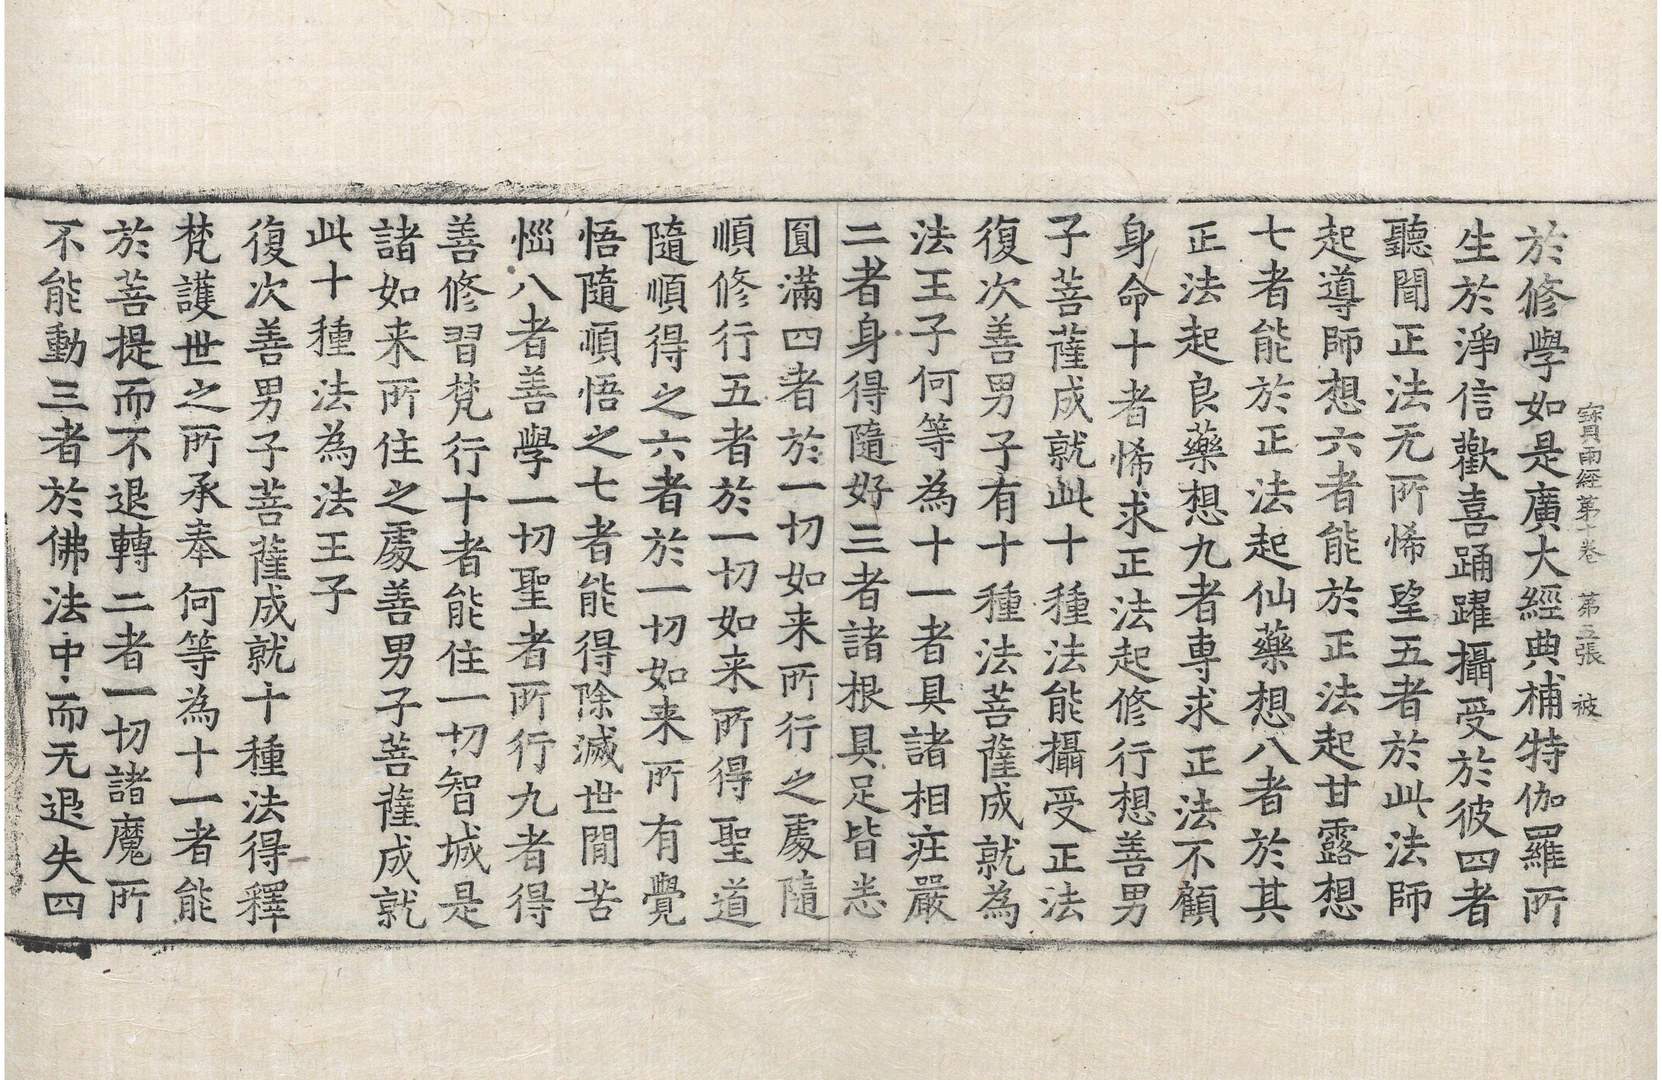 寶雨經第十卷　第五張　被
於修學如是廣大經典補特伽羅所
生於淨信歡喜踊躍攝受於彼四者
聽聞正法无所悕望五者於此法師
起導師想六者能於正法起甘露想
七者能於正法起仙藥想八者於其
正法起良藥想九者專求正法不顧
身命十者悕求正法起修行想善男
子菩薩成就此十種法能攝受正法
復次善男子有十種法菩薩成就為
法王子何等為十一者具諸相莊嚴
二者身得隨好三者諸根具足皆悉
圓滿四者於一切如来所行之處隨
順修行五者於一切如来所得聖道
隨順得之六者於一切如来所有覺
悟隨順悟之七者能得除滅世間苦
惱八者善學一切聖者所行九者得
善修習梵行十者能住一切智城是
諸如来所住之處善男子菩薩成就
此十種法為法王子
復次善男子菩薩成就十種法得釋
梵護世之所承奉何等為十一者能
於菩提而不退轉二者一切諸魔所
不能動三者於佛法中而无退失四